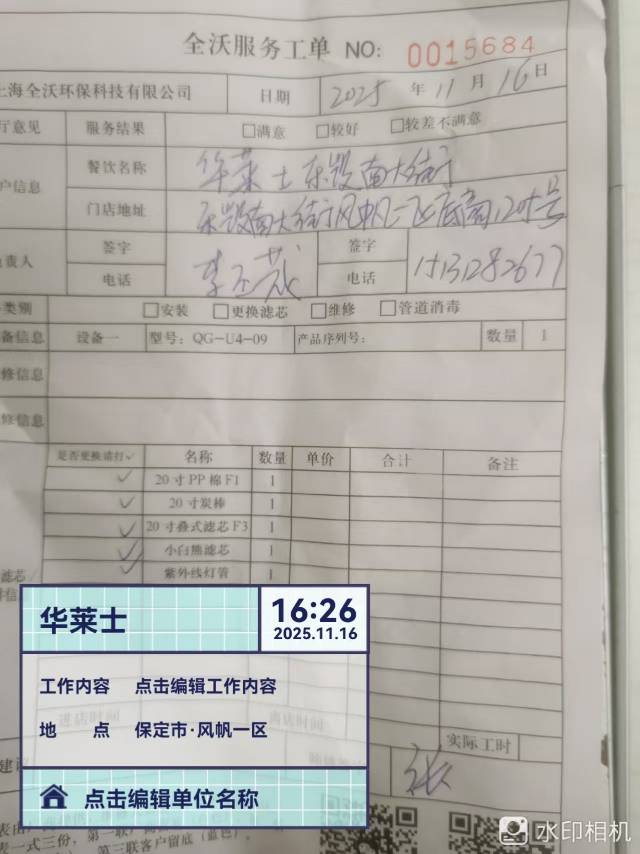 全沃服务工单 NO: 0015684
上海全沃环保科技有限公司 日期 2025 年 11 月 16 日
厅意见 服务结果 □满意 □较好 □较差不满意
户信息 餐饮名称 华莱士东毁南大街
门店地址 东毁南大街风帆一区底商
负责人 签字 签字
电话 李 电话 15131282677
类别 □安装 □更换滤芯 □维修 □管道消毒
备信息 设备一 型号: QG-U4-09 产品序列号: 数量 1
修信息
修信息
是否更换请打✓ 名称 数量 单价 合计 备注
✓ 20寸PP棉F1 1
✓ 20寸炭棒 1
✓ 20寸叠式滤芯F3 1
✓ 小白熊滤芯 1
✓ 紫外线灯管 1
滤芯
华莱士 16:26
2025.11.16
工作内容 点击编辑工作内容
进店时间 离店时间
地 点 保定市·风帆一区
实际工时
建议 张
点击编辑单位名称
表一式三份，第一联
第三联客户留底（蓝色）。
水印相机